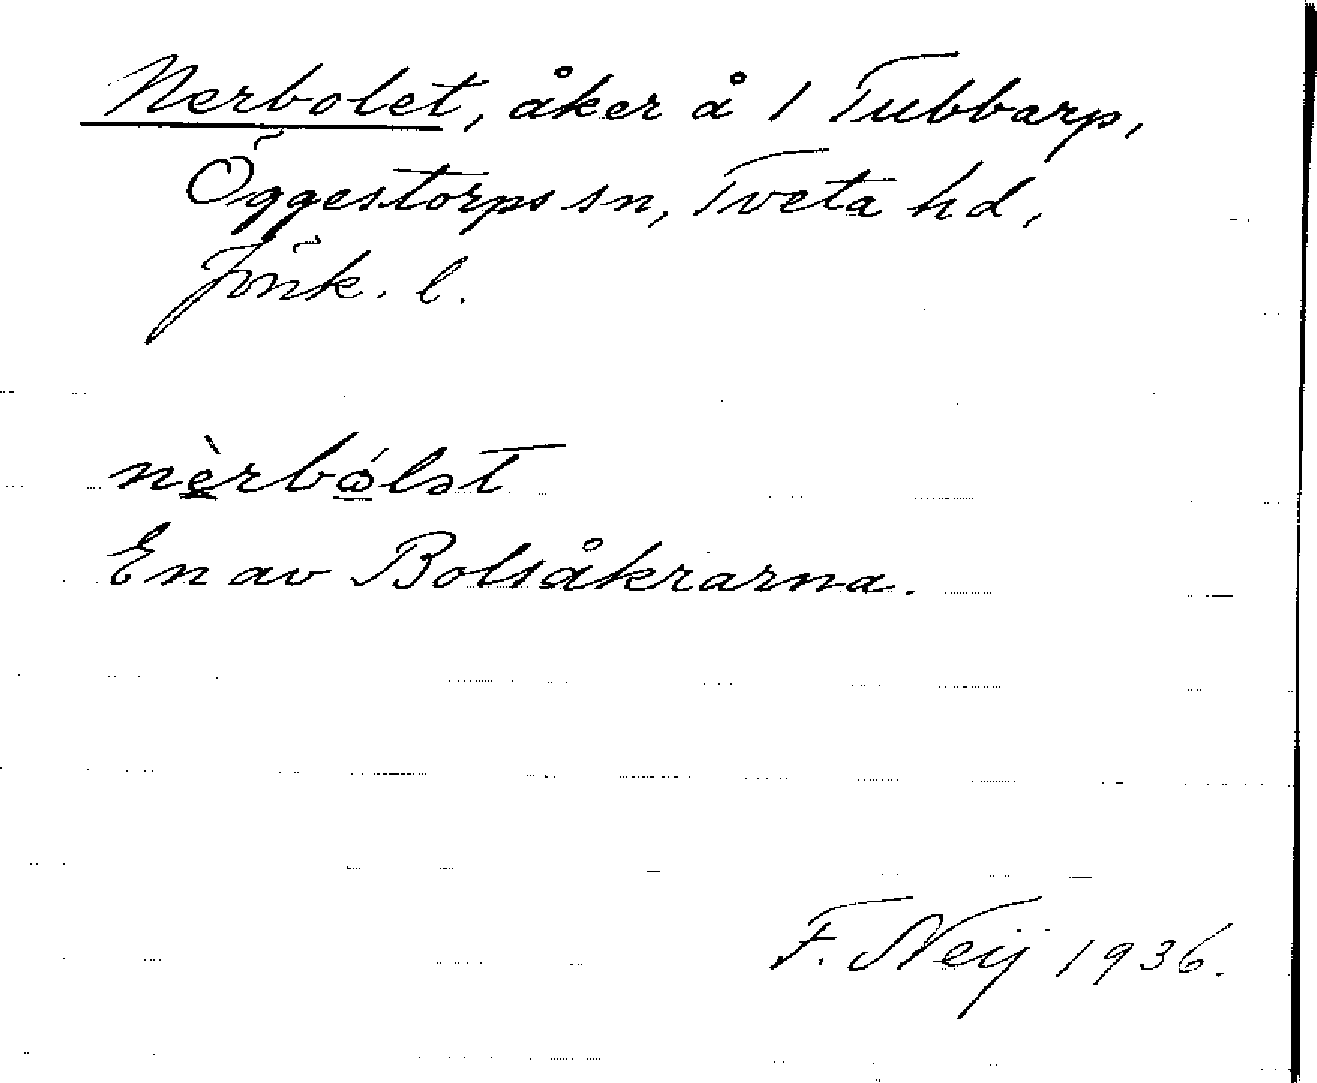 Nerbolet, åker å 1 Tubbarp,
Öggestorps sn, Tveta hd,
Jönk. l.
nè̱rbǿ̱lət
En av Bolsåkrarna.
F. Neij 1936.